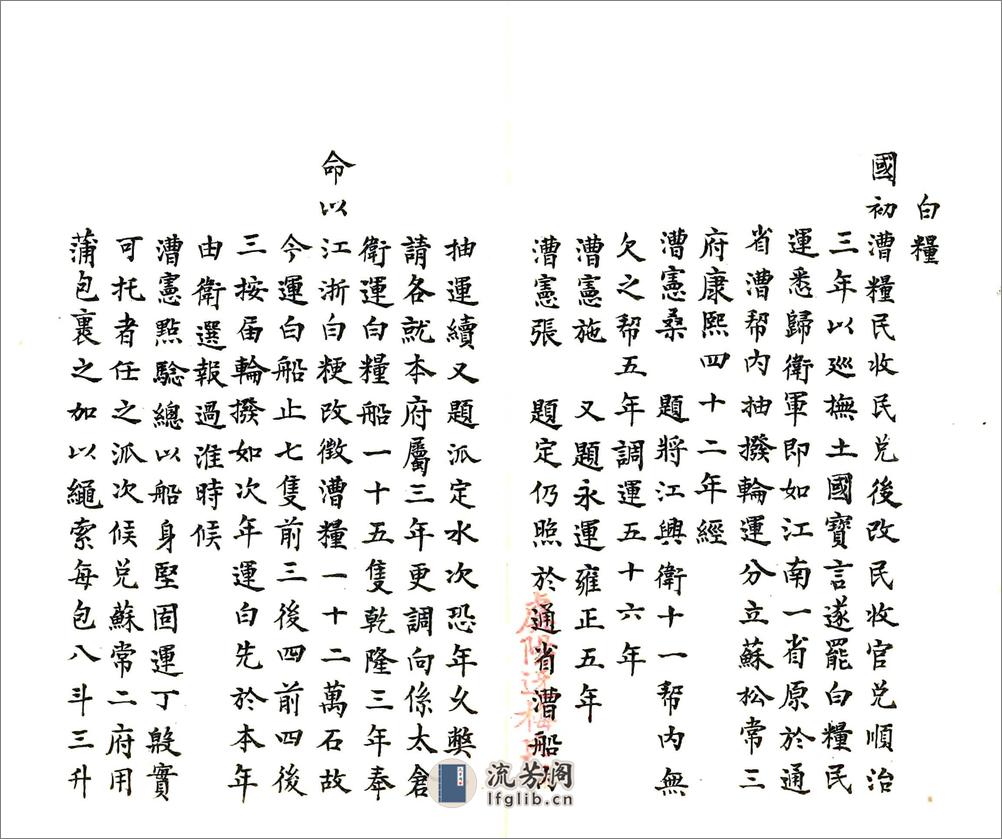 白糧
國初漕糧民收民兌後改民收官兌順治
三年以巡撫土國寶言遂罷白糧民
運悉歸衛軍即如江南一省原於通
省漕幫內抽撥輪運分立蘇松常三
府康熙四十二年經
漕憲桑　題將江興衛十一幫內無
欠之幫五年調運五十六年
漕憲施　又題永運雍正五年
漕憲張　題定仍照於通省漕船內
抽運續又題派定水次恐年久獘
請各就本府屬三年更調向係太倉
衛運白糧船一十五隻乾隆三年奉
命以江浙白粳改徵漕糧一十二萬石故
今運白船止七隻前三後四前四後
三按届輪撥如次年運白先於本年
由衛選報過淮時候
漕憲㸃驗總以船身堅固運丁殷實
可托者任之派次候兌蘇常二府用
蒲包裹之加以繩索每包八斗三升
流芳阁
lfglib.cn